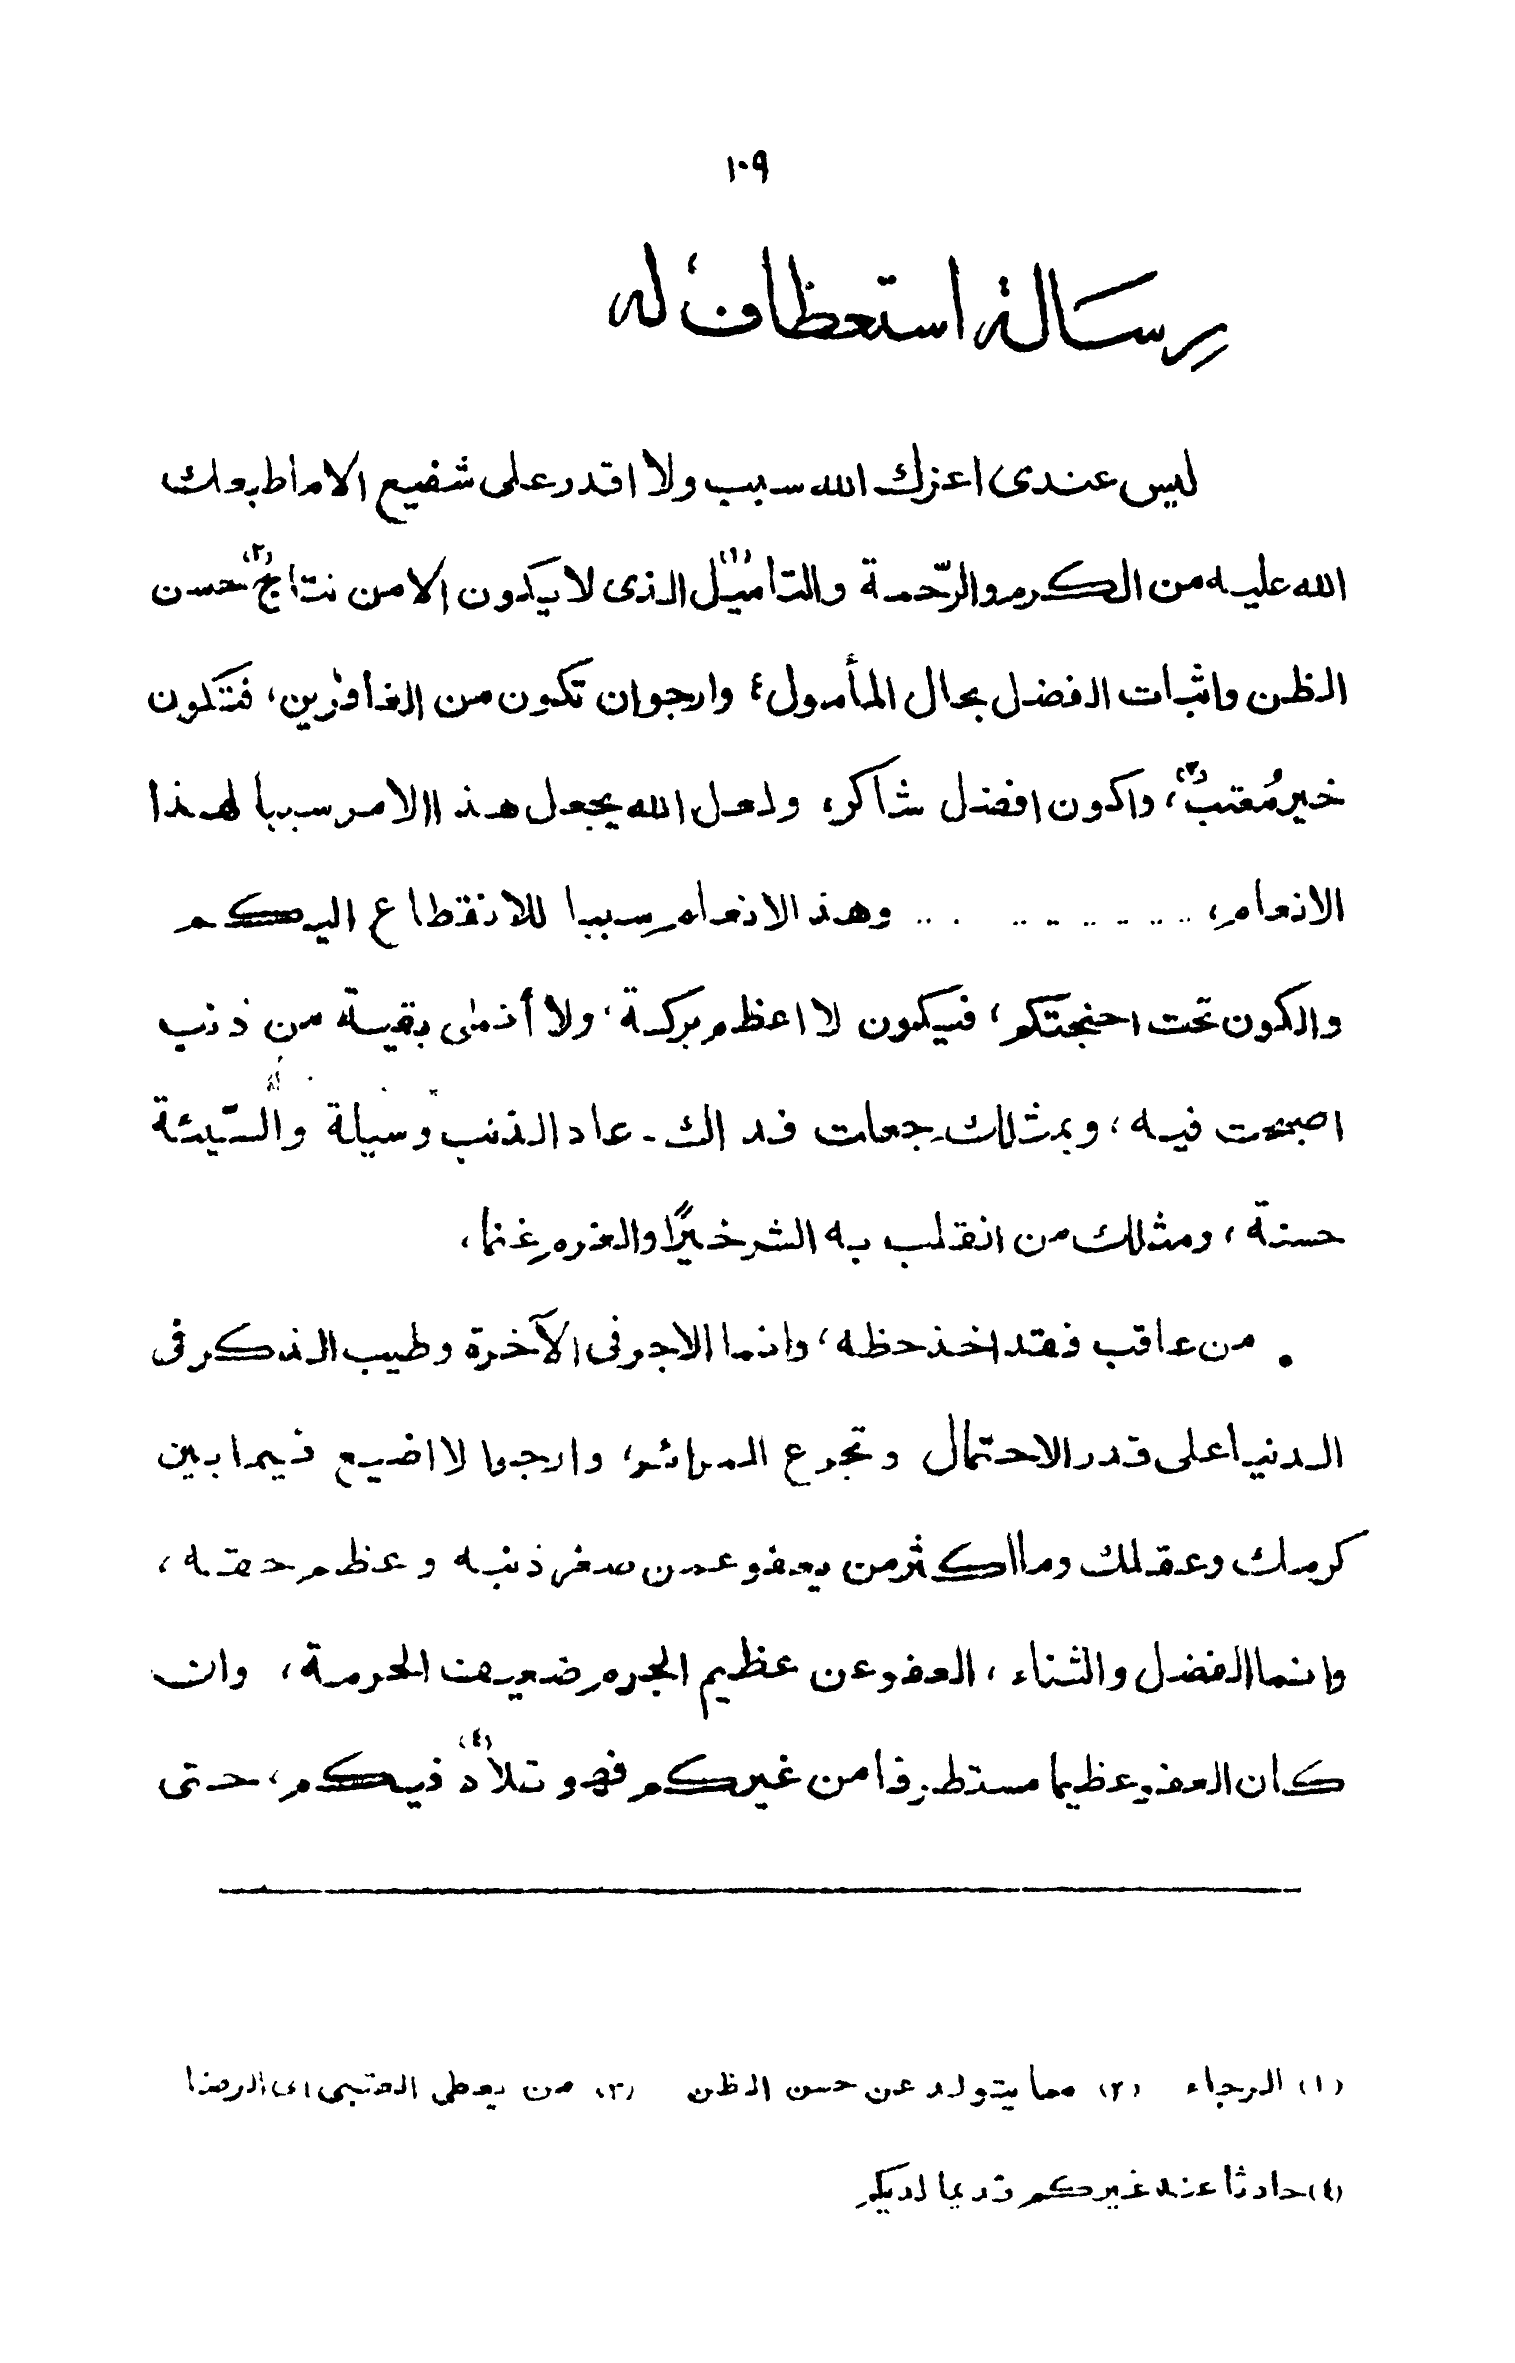 ١٠٩
رسالة استعطاف له
ليس عندى اعزك الله سبب ولا اقدر على شفيع الا ما طبعك
الله عليه من الكرم والرّحمة والتأميل(١) الذى لا يكون الا من نتاج(٢) حسن
الظن واثبات الفضل بحال المأمول، وارجو ان تكون من الغافرين، فتكون
خير مُعتب(٣)، واكون افضل شاكر، ولعل الله يجعل هذا الامر سببا لهذا
الانعام، .. .. .. .. .. .. . .. وهذا الانعام سببا للانقطاع اليكم
والكون تحت اجنحتكم، فيكون لا اعظم بركة، ولا أنمى بقية من ذنب
اصبحت فيه، وبمثلك جعلت فداك - عاد الذنب وسيلة والسّيئة
حسنة، ومثلك من انقلب به الشر خيرًا والغرم غنما،
• من عاقب فقد اخذ حظه، وانما الاجر فى الآخرة وطيب الذكر فى
الدنيا على قدر الاحتمال وتجرع المرائر، وارجو لا اضيع فيما بين
كرمك وعقلك وما اكثر من يعفو عمن صغر ذنبه وعظم حقه،
وانما الفضل والثناء، العفو عن عظيم الجرم ضعيف الحرمة، وان
كان العفو عظيما مستطرفا من غيركم فهو تلاد(٤) فيكم، حتى
(١) الرجاء (٢) مما يتولد عن حسن الظن (٣) من يعطى العتبى اى الرضا
(٤) حادثا عند غيركم قديما لديكم